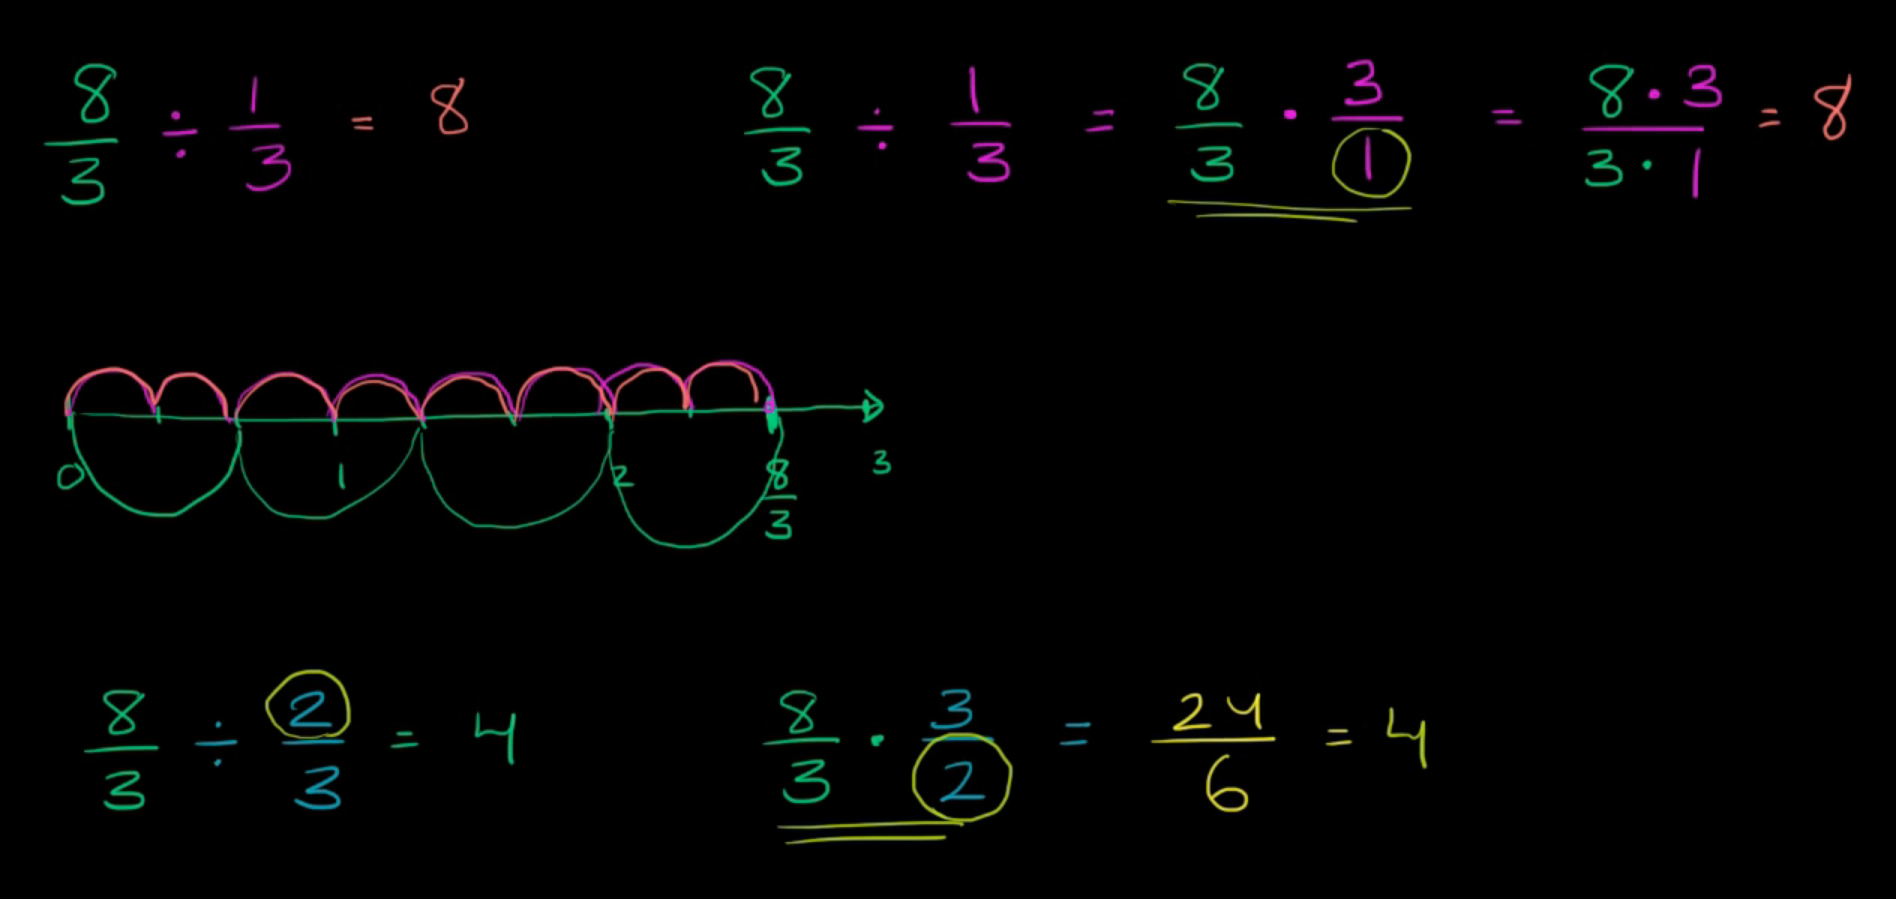 8/3 ÷ 1/3 = 8
8/3 ÷ 1/3 = 8/3 · 3/1 = 8·3/3·1 = 8
0 1 2 8/3 3
8/3 ÷ 2/3 = 4
8/3 · 3/2 = 24/6 = 4